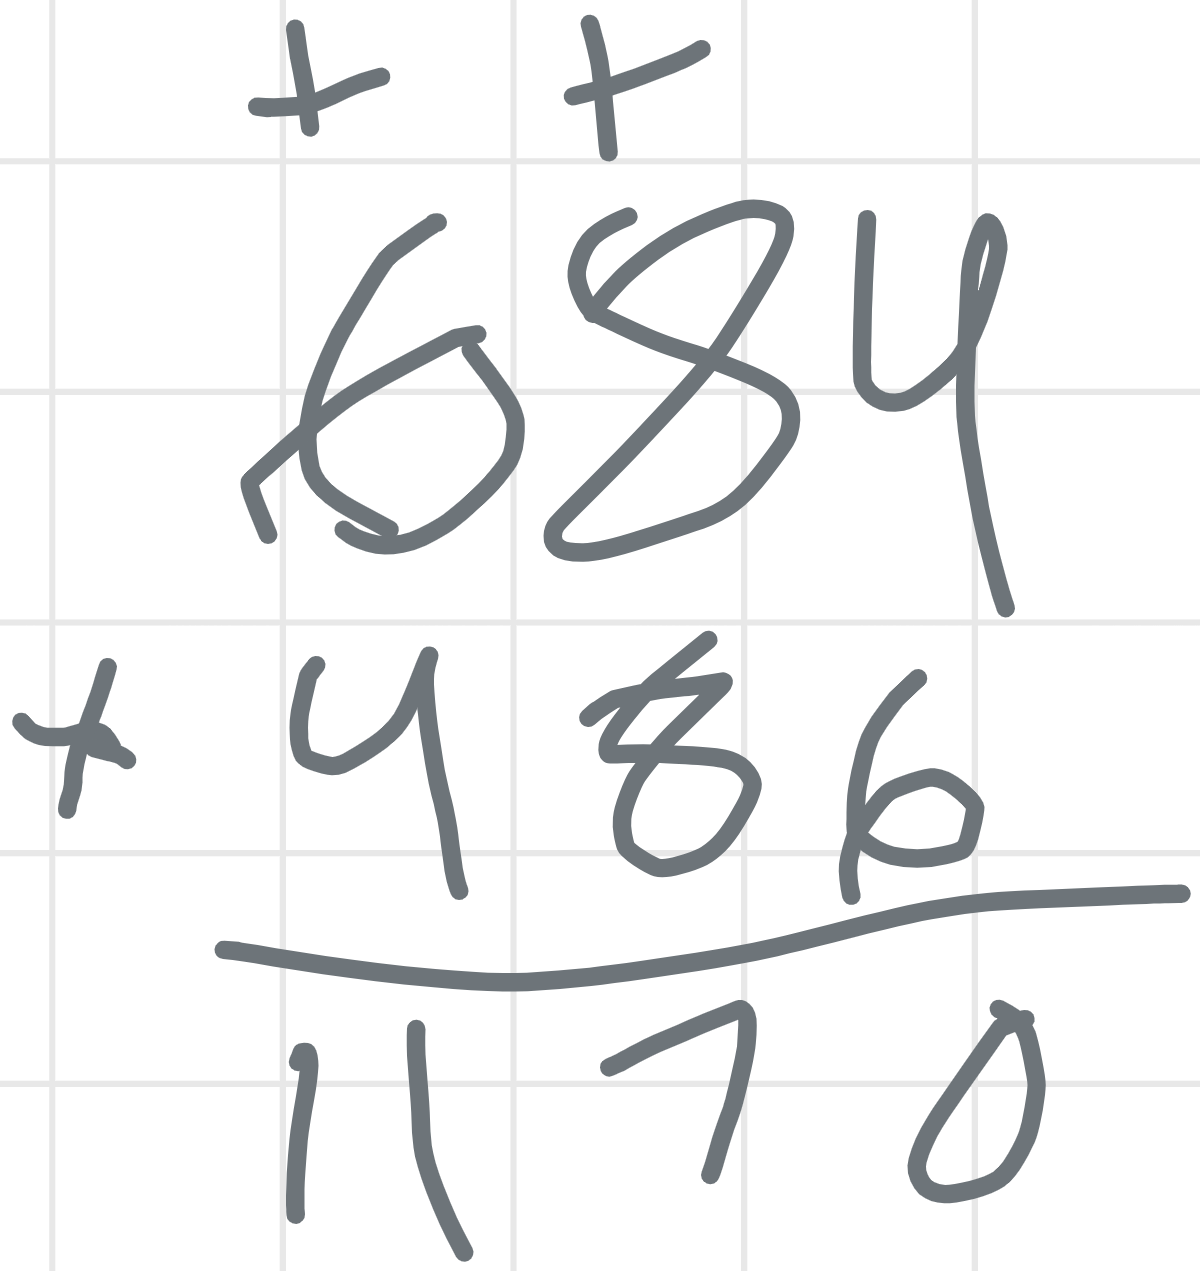 + +
684
+ 486
1170